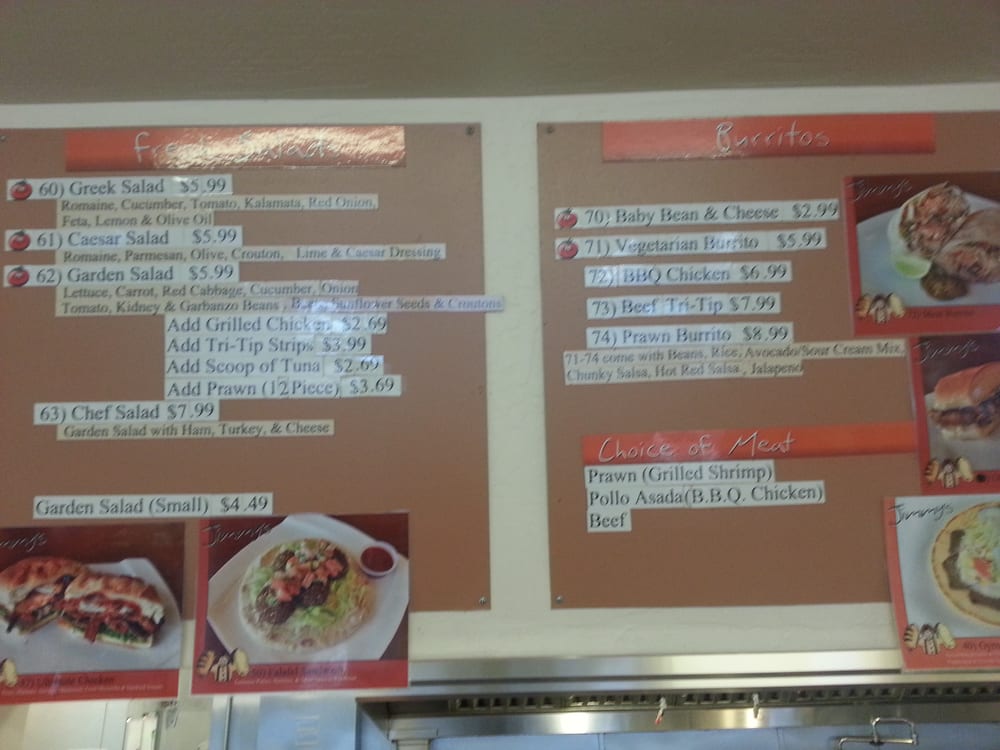 Fresh Salad
60) Greek Salad $5.99
Romaine, Cucumber, Tomato, Kalamata, Red Onion,
Feta, Lemon & Olive Oil
61) Caesar Salad $5.99
Romaine, Parmesan, Olive, Crouton, Lime & Caesar Dressing
62) Garden Salad $5.99
Lettuce, Carrot, Red Cabbage, Cucumber, Onion
Tomato, Kidney & Garbanzo Beans, Sunflower Seeds & Croutons
Add Grilled Chicken $2.69
Add Tri-Tip Strips $3.99
Add Scoop of Tuna $2.69
Add Prawn (12 Piece) $3.69
63) Chef Salad $7.99
Garden Salad with Ham, Turkey, & Cheese
Garden Salad (Small) $4.49
Jimmy's
50) Falafel Sandwich
Burritos
70) Baby Bean & Cheese $2.99
71) Vegetarian Burrito $5.99
72) BBQ Chicken $6.99
73) Beef Tri-Tip $7.99
74) Prawn Burrito $8.99
71-74 come with Beans, Rice, Avocado/Sour Cream Mix,
Chunky Salsa, Hot Red Salsa , Jalapeno
Choice of Meat
Prawn (Grilled Shrimp)
Pollo Asada(B.B.Q. Chicken)
Beef
Jimmy's
Jimmy's
Jimmy's